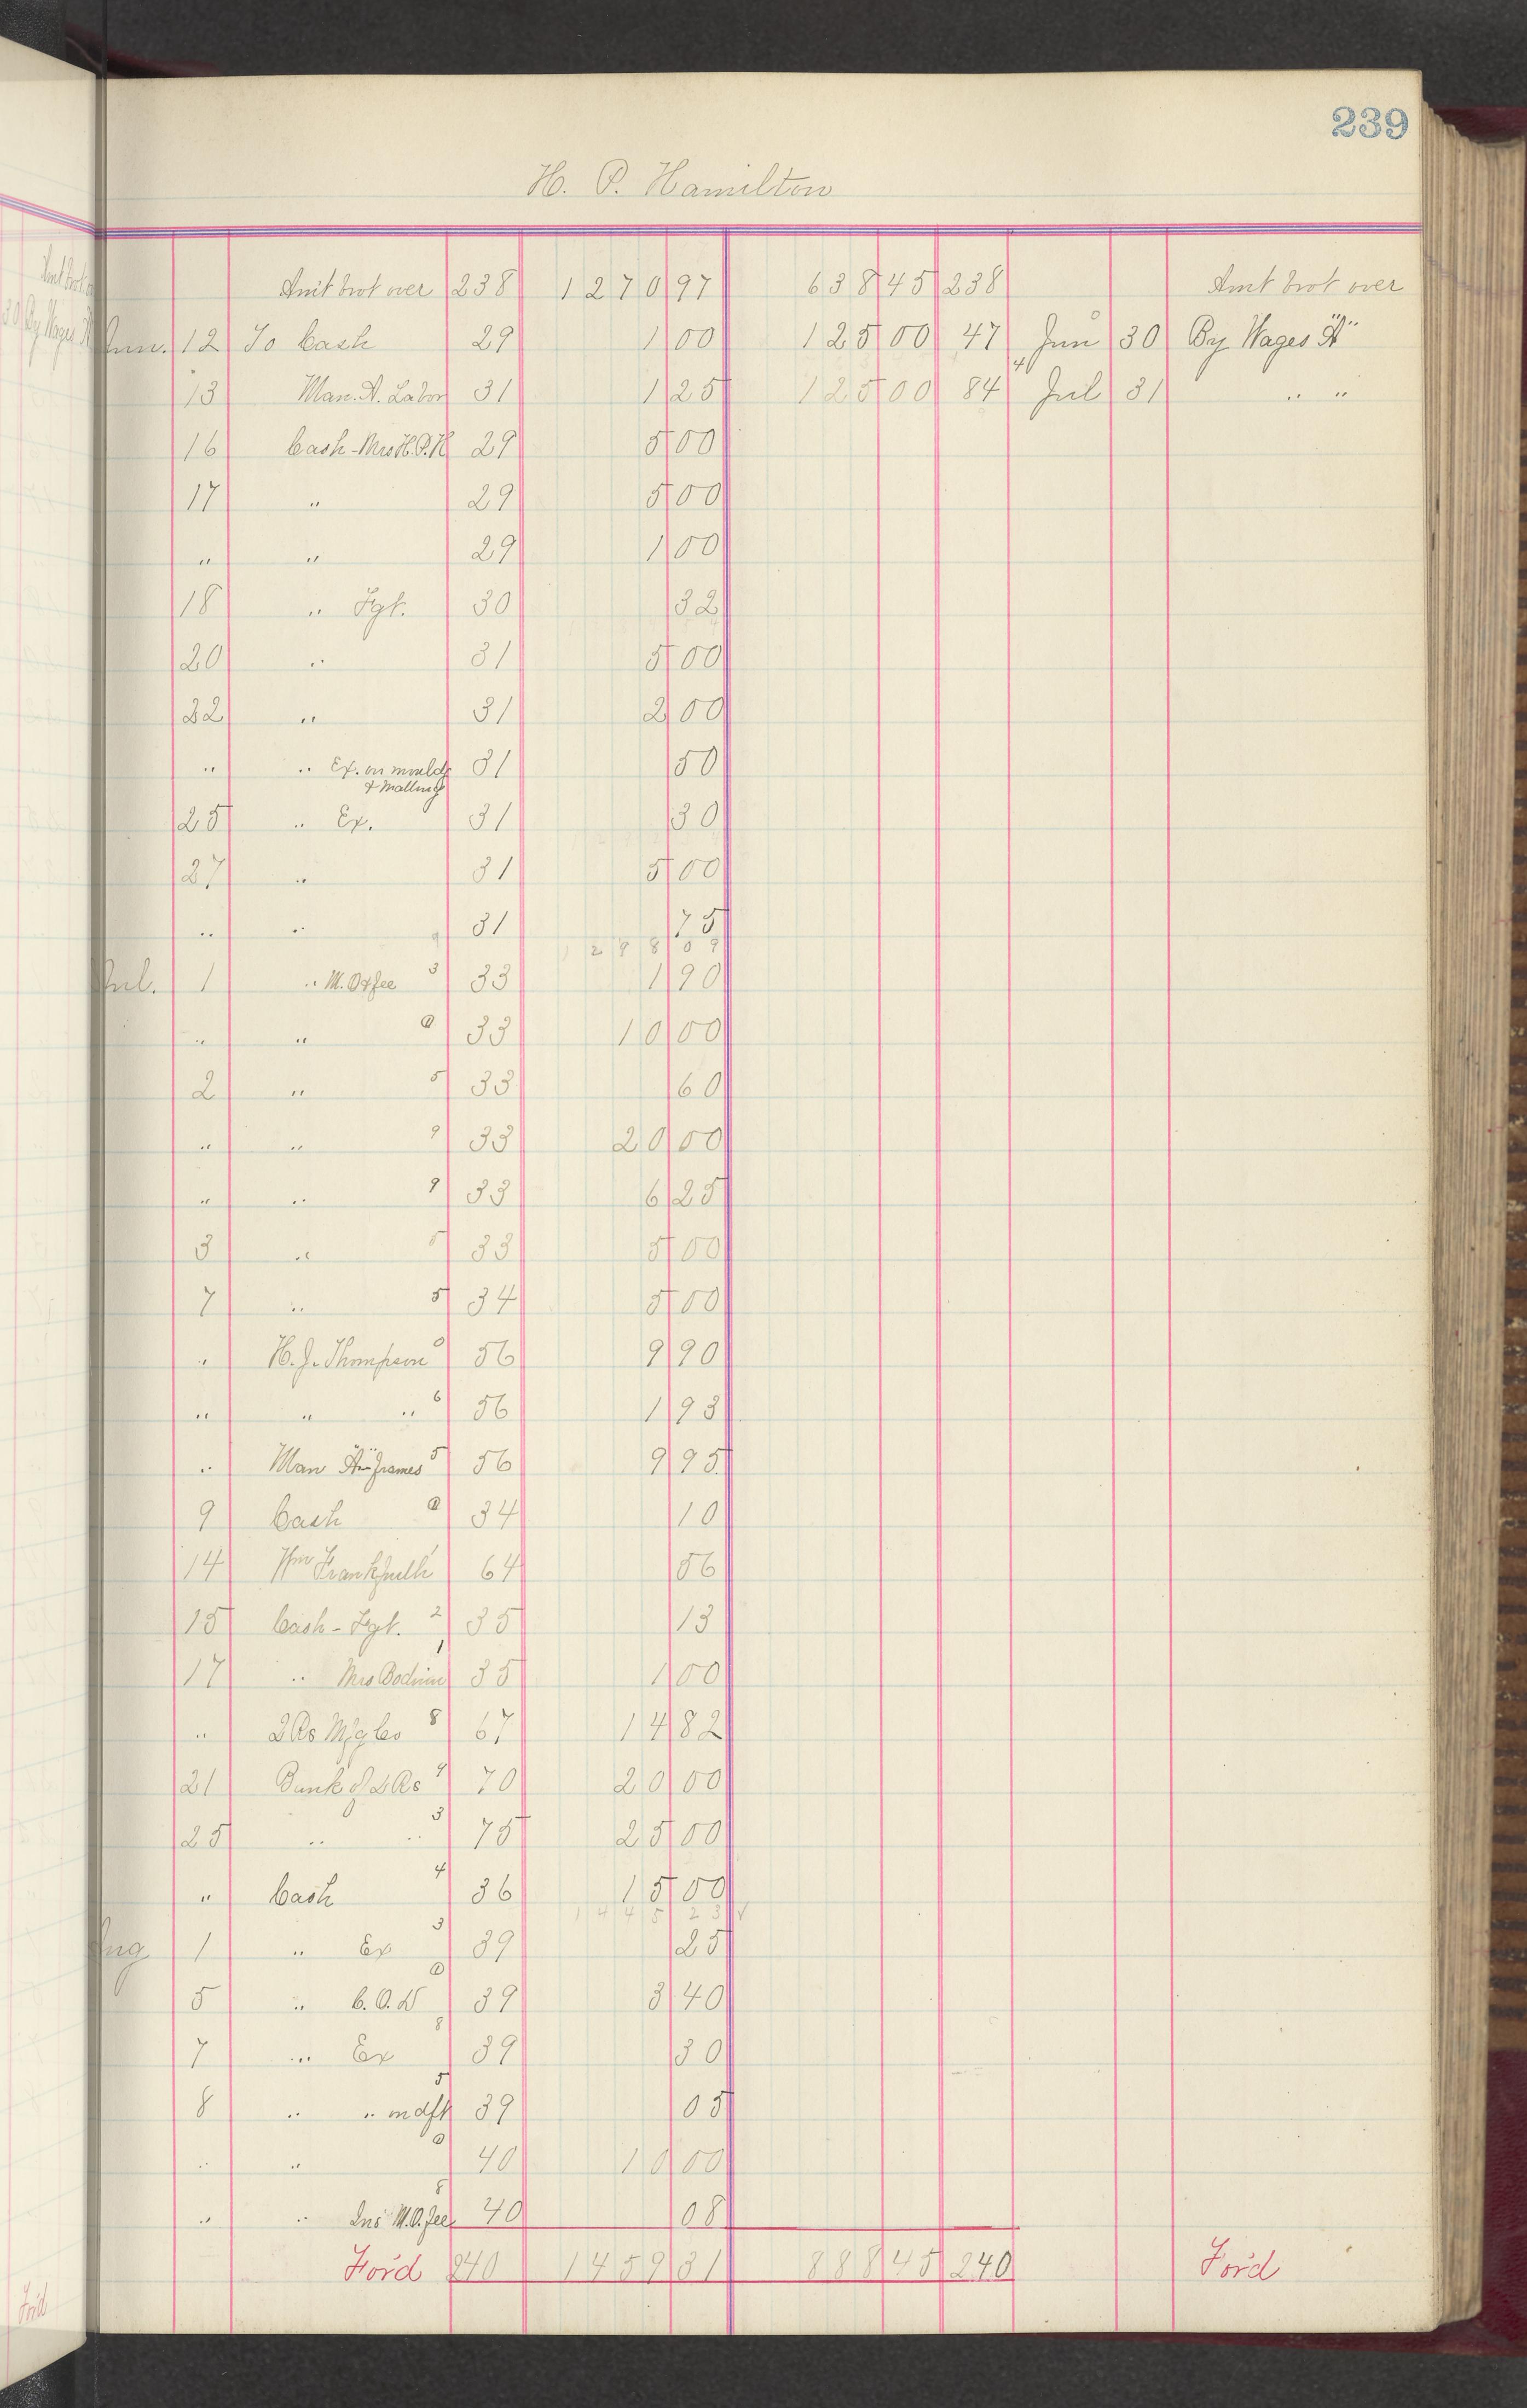 239
H. P. Hamilton
Amt brot over 238 1270 97 638 45 238 Amt brot over
Jun. 12 To Cash 29 1 00 125 00 47 Jun 30 By Wages "A"
13 Man. A. Labor 31 1 25 125 00 84 Jul 31 " "
16 Cash - Mrs H.P.H 29 5 00
17 " 29 5 00
" " 29 1 00
18 " Fgt. 30 32
20 " 31 5 00
22 " 31 2 00
" " Ex. on moulds 31 50
& Malling
25 " Ex. 31 30
27 " 31 5 00
" " 31 75
1 2 9 8 0 9
Jul. 1 " M. O. fee 3 33 1 90
" " 0 33 10 00
2 " 5 33 60
" " 9 33 20 00
" " 9 33 6 25
3 " 5 33 5 00
7 " 5 34 5 00
" H. J. Thompson 0 56 9 90
" " " 6 56 1 93
" Man "A" frames 5 56 9 95
9 Cash 0 34 10
14 Wm Frankfurth 64 56
15 Cash - Fgt. 2 35 13
17 " Mrs Bodwin 1 35 1 00
" 2 Rs Mfg Co 8 67 14 82
21 Bank of 2 Rs 4 70 20 00
25 " " 3 75 25 00
" Cash 4 36 15 00
1 4 4 5 2 3
Aug 1 " Ex 3 39 25
5 " C.O.D 0 39 3 40
7 " Ex 8 39 30
8 " " 5 39 05
" " 0 40 10 00
" " Ins M.O. fee 8 40 08
For'd 240 1459 31 888 45 240 For'd